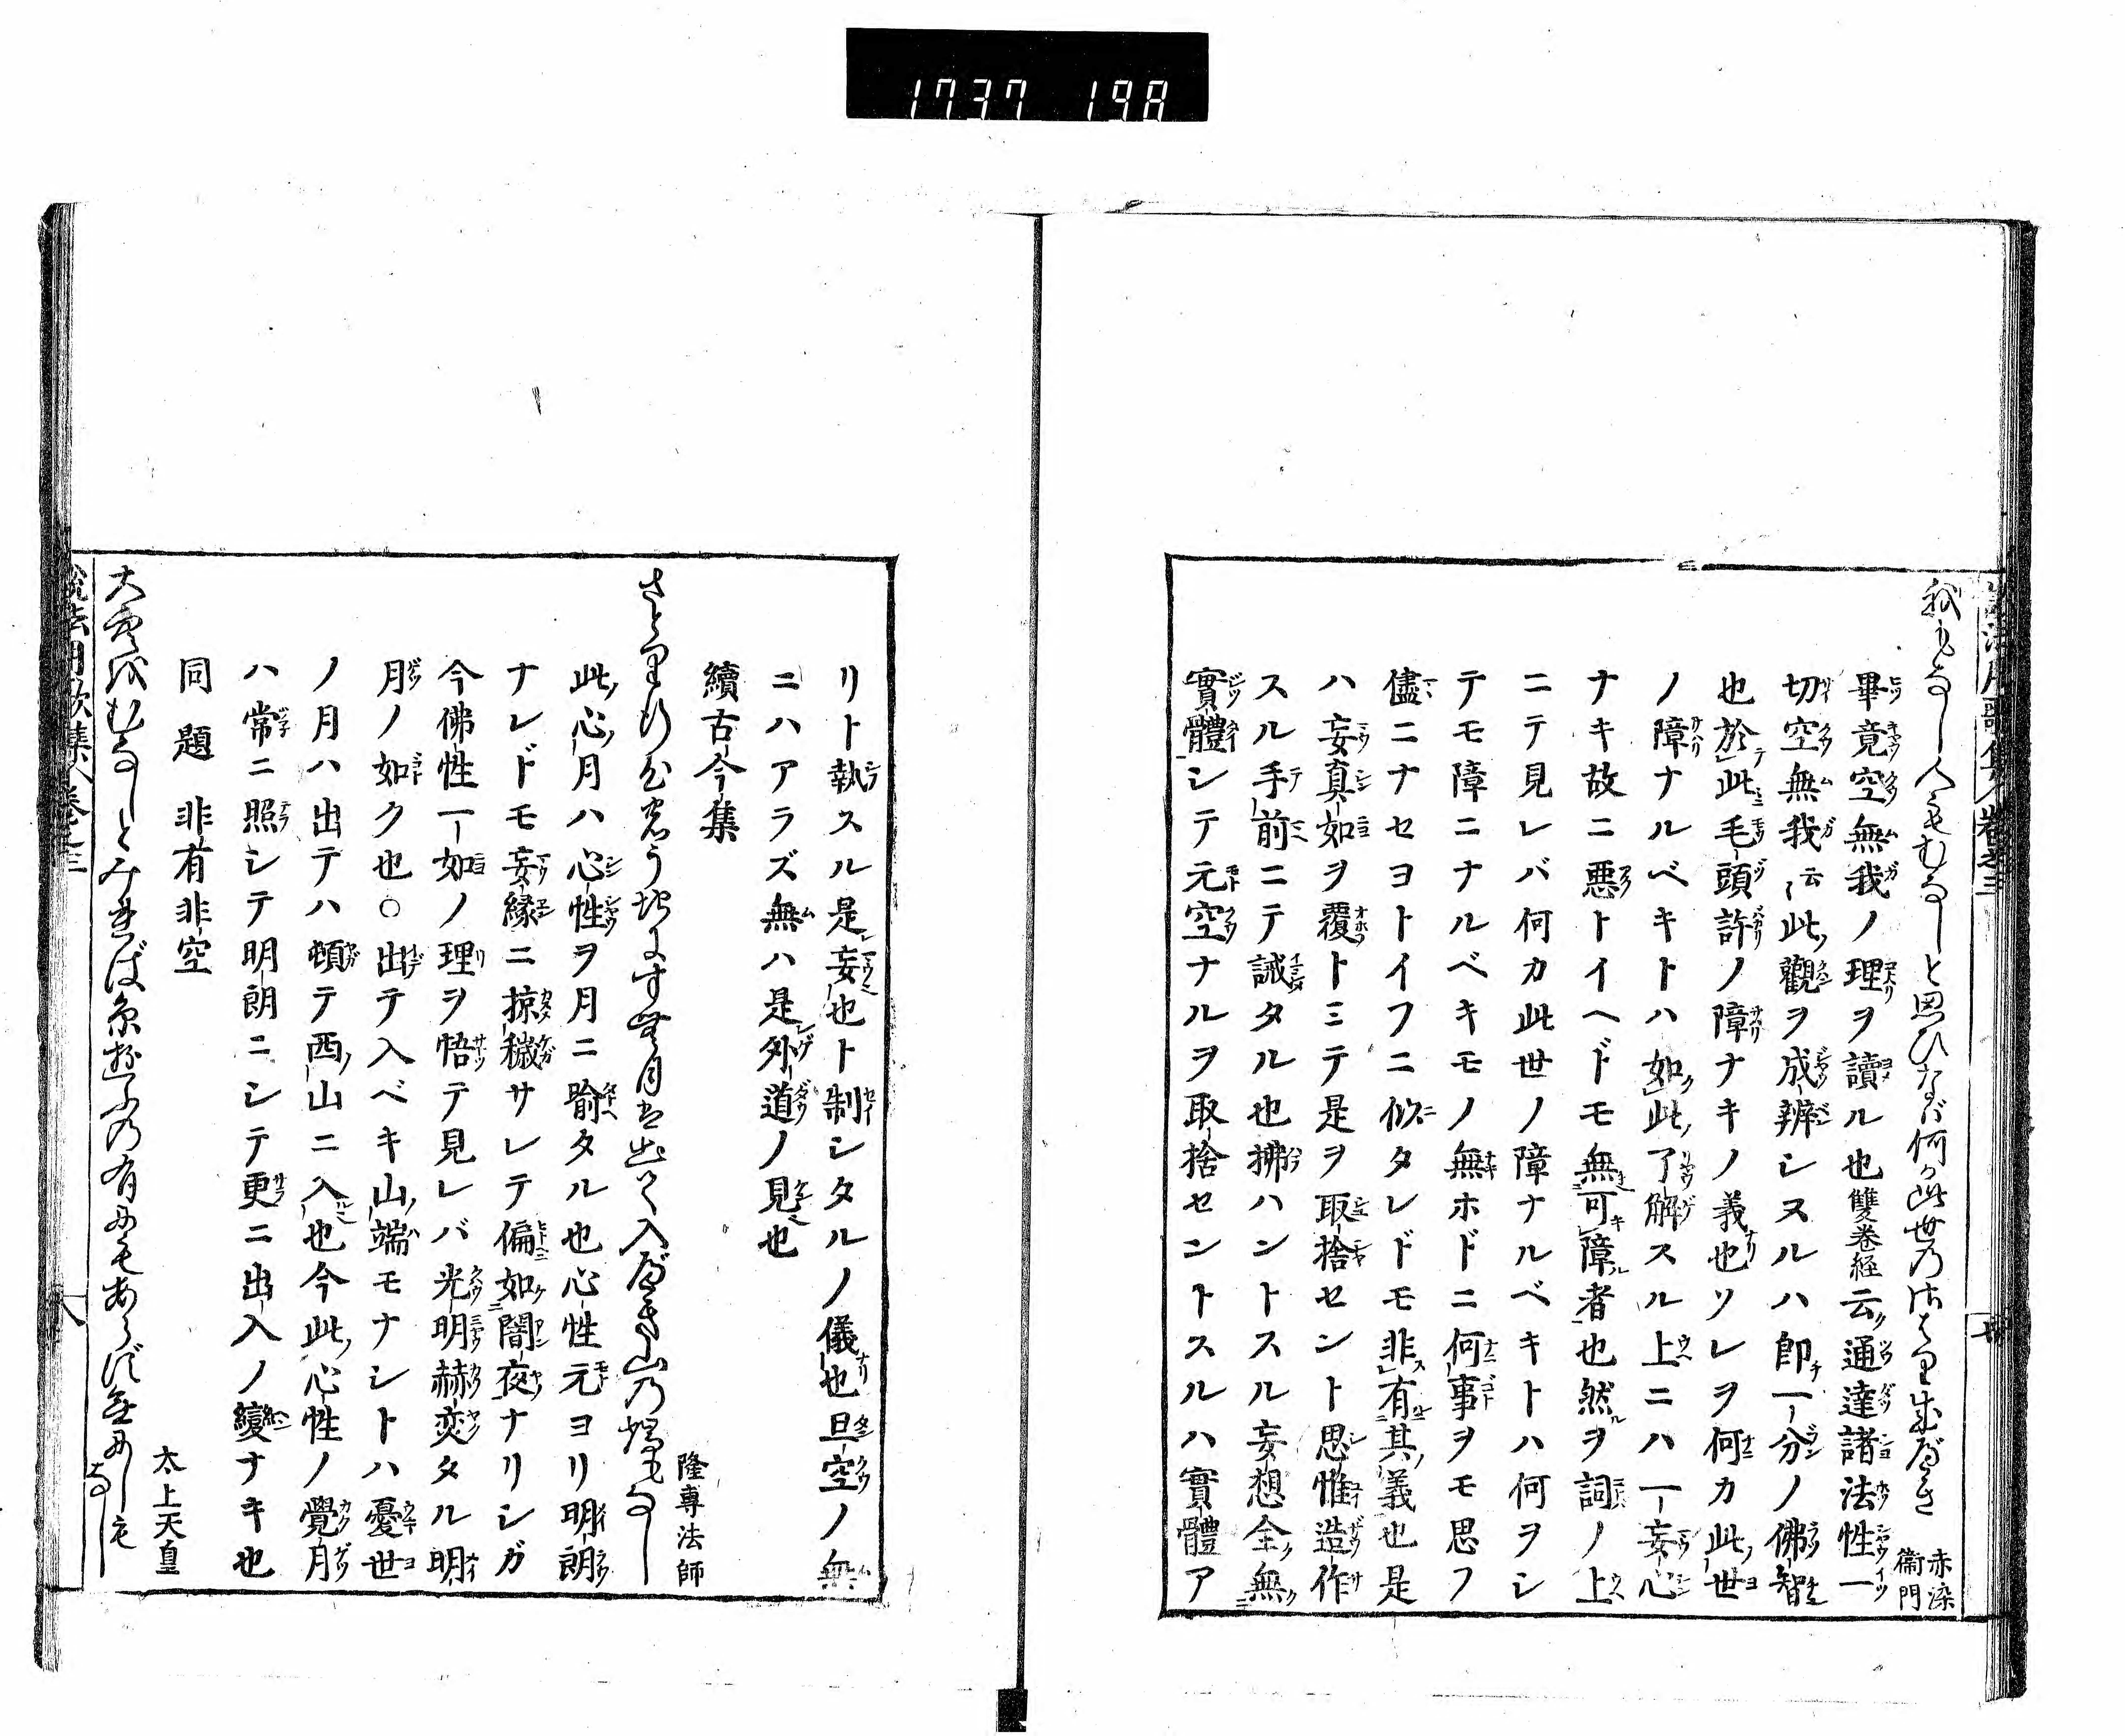 1737 198
我もなし人もむなしと思ひなば何か此世のさはり成べき
赤染
衞門
畢竟空無我ノ理ヲ讀ル也雙巻経云通達諸法性一
切空無我云云此觀ヲ成辨シヌルハ即一分ノ佛智
也於此毛頭許ノ障ナキノ義也ソレヲ何カ此世
ノ障ナルベキトハ如此了解スル上ニハ一妄心
ナキ故ニ悪トイヘドモ無可障者也然ヲ詞ノ上
ニテ見レバ何カ此世ノ障ナルベキトハ何ヲシ
テモ障ニナルベキモノ無ホドニ何事ヲモ思フ
儘ニナセヨトイフニ似タレドモ非有其義也是
ハ妄真如ヲ覆トミテ是ヲ取捨セント思惟造作
スル手前ニテ誡タル也拂ハントスル妄想全無
實體シテ元空ナルヲ取捨セントスルハ實體ア
リト執スル是妄也ト制シタルノ儀也旦空ノ無
ニハアラズ無ハ是外道ノ見也
續古今集
隆専法師
さとり行心の月は出て入べき山の端もなし
此心月ハ心性ヲ月ニ喩タル也心性元ヨリ明朗
ナレドモ妄縁ニ掠穢サレテ偏如闇夜ナリシガ
今佛性一如ノ理ヲ悟テ見レバ光明赫奕タル明
月ノ如ク也○出テ入ベキ山端モナシトハ憂世
ノ月ハ出テハ頓テ西山ニ入也今此心性ノ覺月
ハ常ニ照シテ明朗ニシテ更ニ出入ノ變ナキ也
同題 非有非空
太上天皇
大空をむなしとみれば糸遊の有にもあらず無にしもなし
説法用歌集 卷之三
八